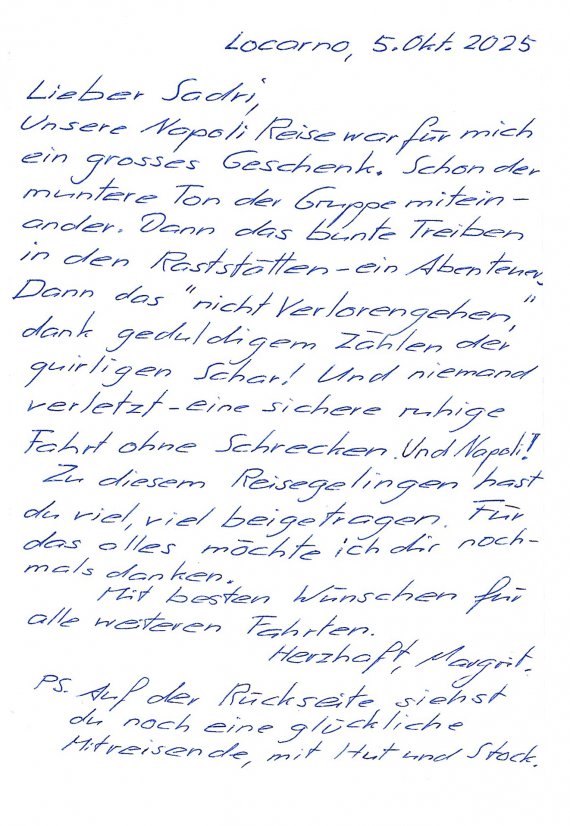 Locarno, 5. Okt. 2025
Lieber Sadri,
Unsere Napoli Reise war für mich
ein grosses Geschenk. Schon der
muntere Ton der Gruppe mitein-
ander. Dann das bunte Treiben
in den Raststätten - ein Abenteuer.
Dann das "nicht Verlorengehen,"
dank geduldigem Zählen der
quirligen Schar! Und niemand
verletzt - eine sichere ruhige
Fahrt ohne Schrecken. Und Napoli!
Zu diesem Reisegelingen hast
du viel, viel beigetragen. Für
das alles möchte ich dir noch-
mals danken.
Mit besten Wünschen für
alle weiteren Fahrten.
Herzhaft, Margrit.
PS. Auf der Rückseite siehst
du noch eine glückliche
Mitreisende, mit Hut und Stock.